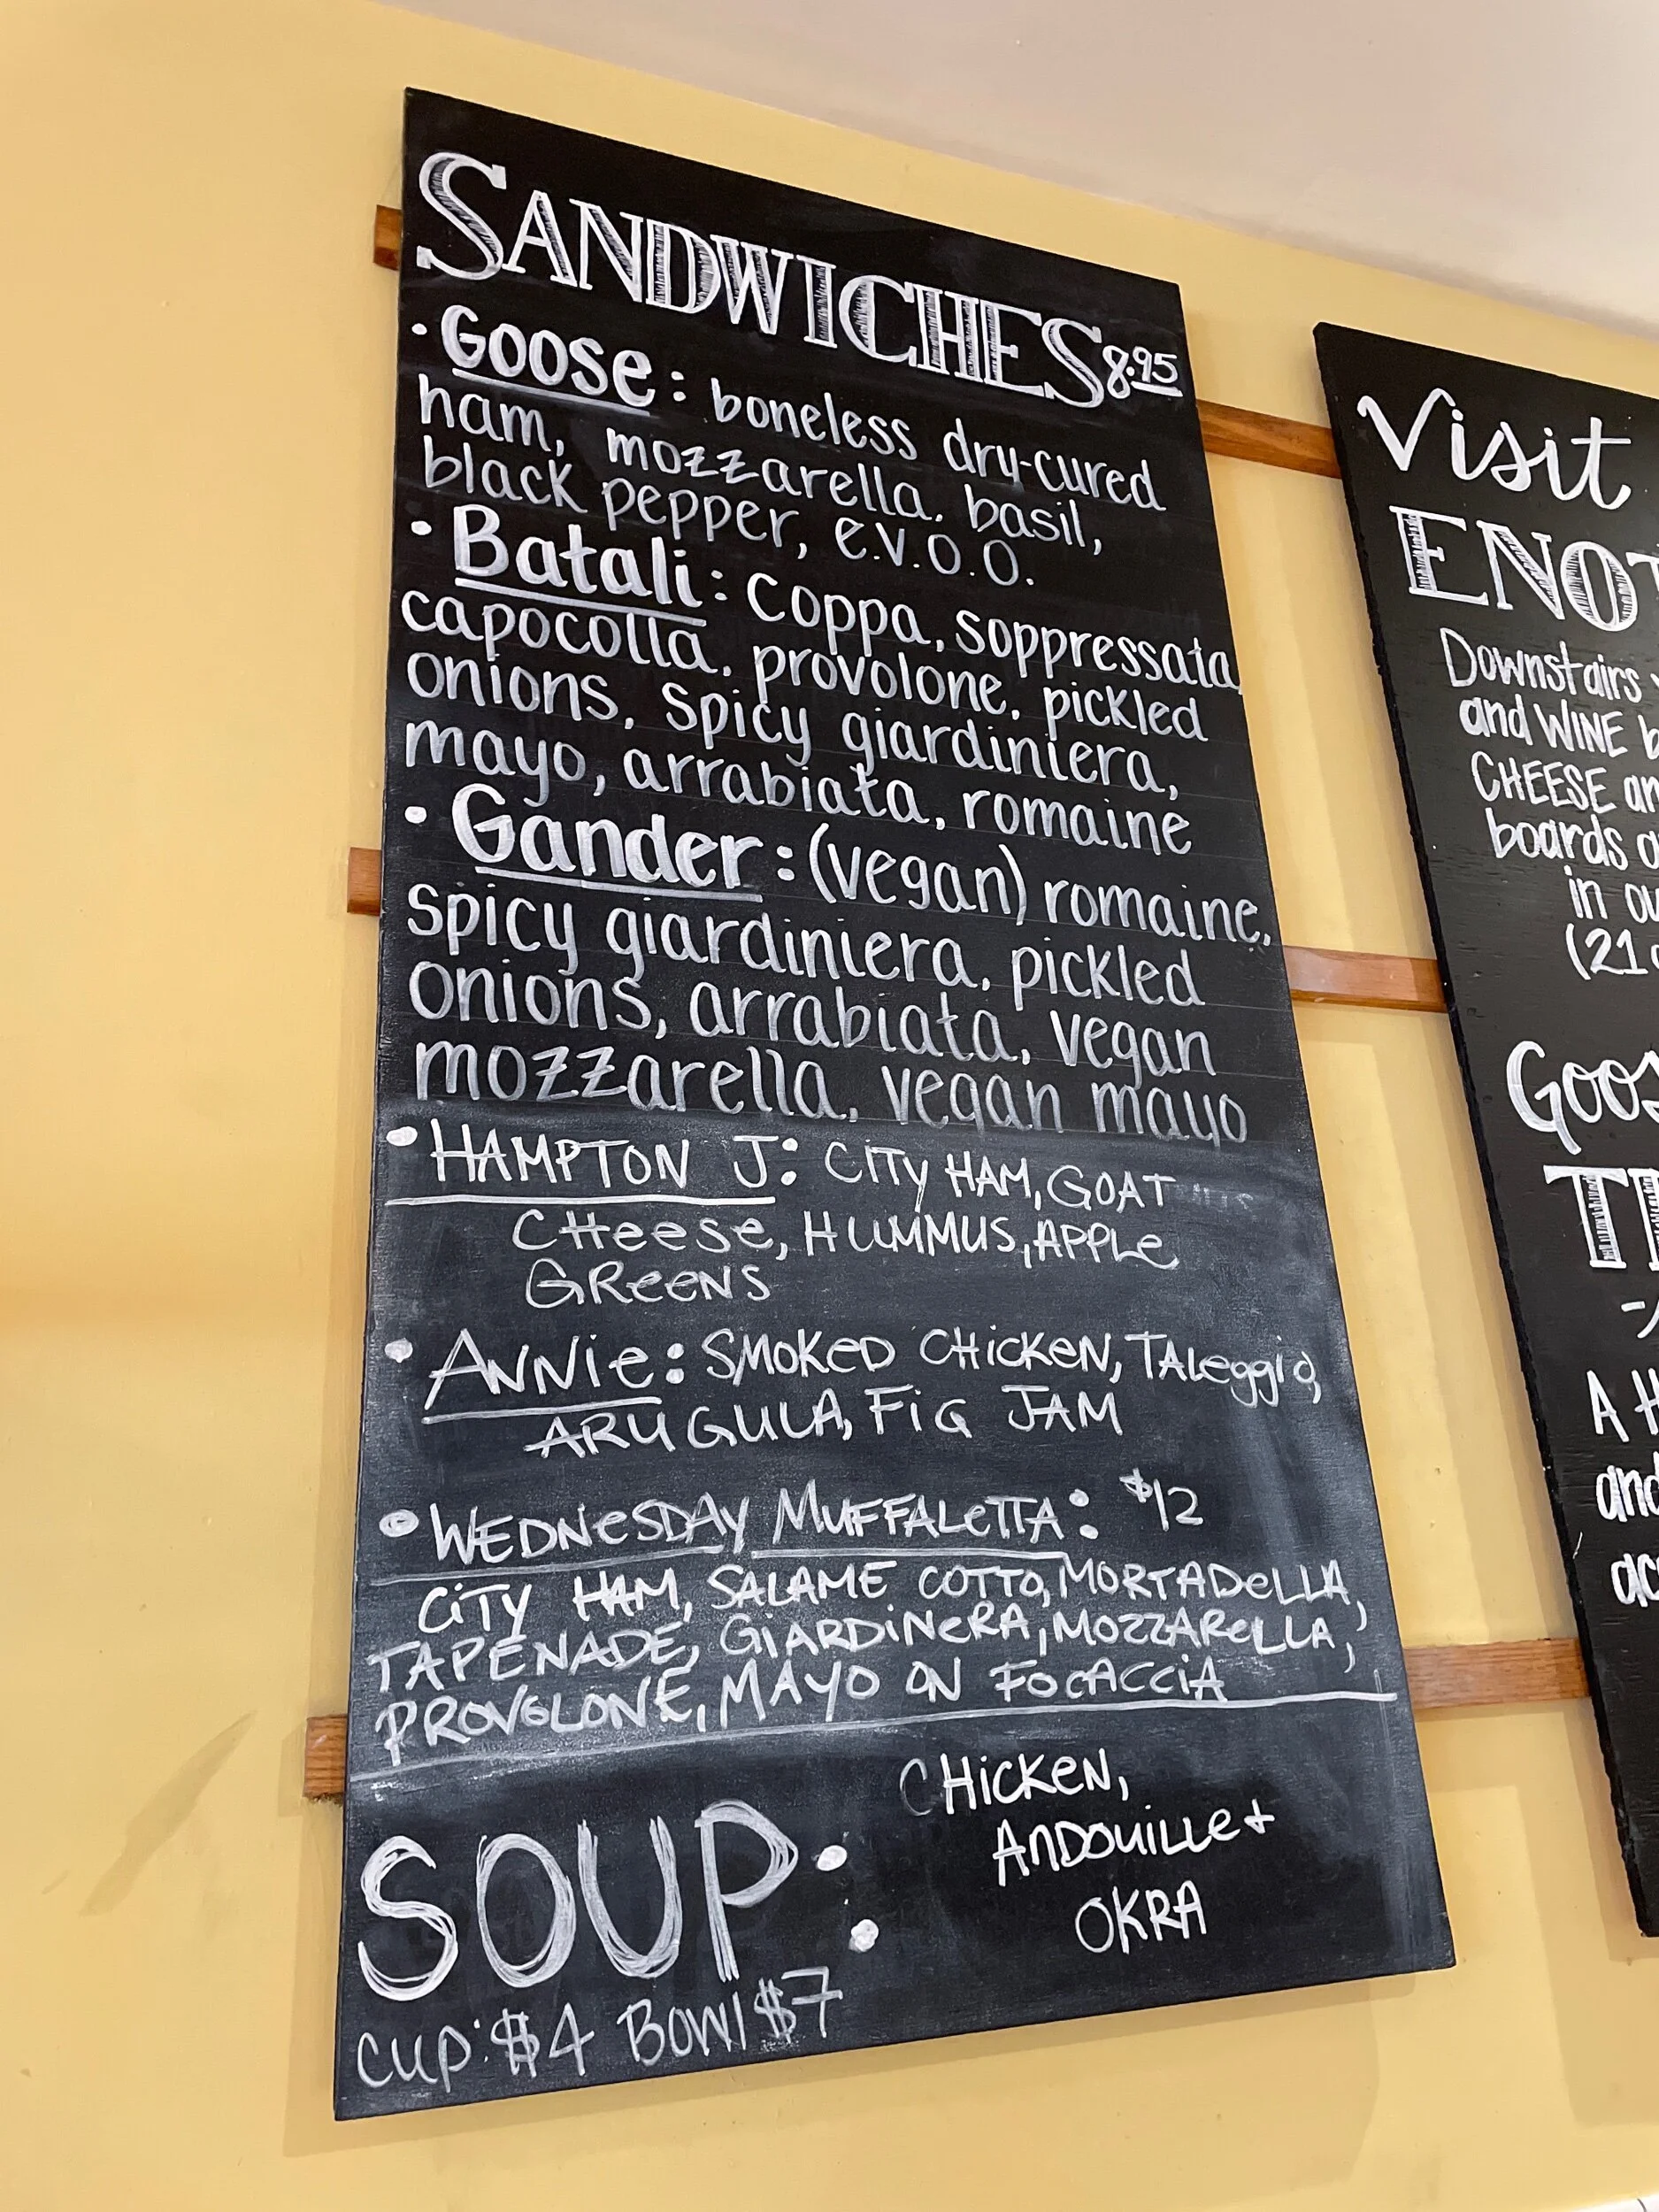 SANDWICHES 8.95
• Goose: boneless dry-cured
ham, mozzarella, basil,
black pepper, e.v.o.o.
• Batali: coppa, soppressata,
capocolla, provolone, pickled
onions, spicy giardiniera,
mayo, arrabiata, romaine
• Gander: (vegan) romaine,
spicy giardiniera, pickled
onions, arrabiata, vegan
mozzarella, vegan mayo
• HAMPTON J: CITY HAM, GOAT
CHeese, HUMMUS, APPLe
GReeNS
• ANNie: SMOKeD CHicKeN, TALeggio,
ARUGULA, FiG JAM
• WEDNeSDAY MUFFALeTTA: $12
CiTY HAM, SALAME COTTO, MORTADeLLA,
TAPENADE, GiARDiNeRA, MOZZAReLLA,
PROVOLONE, MAYO ON FOCACCiA
SOUP: CHicKeN,
ANDOUiLLe +
OKRA
cup: $4 BOWl $7
Visit
ENOT
Downstairs
and WINE b
CHEESE an
boards a
in ou
(21
Goos
A H
and